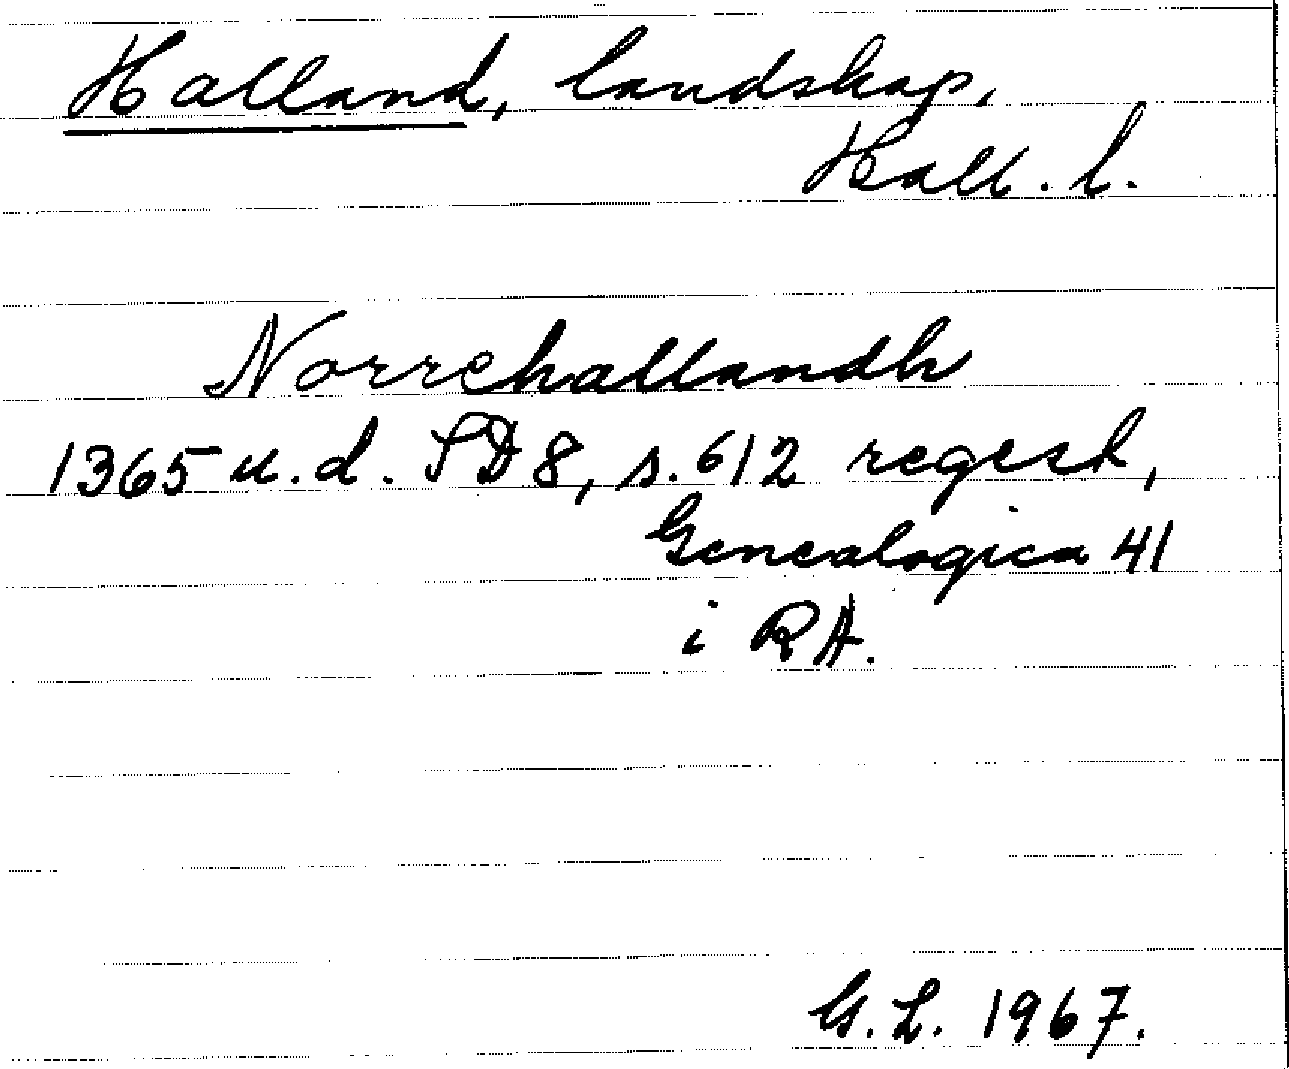 Halland, landskap,
Hall. l.
Norrehallandh
1365 u.d. SD 8, s. 612 regest,
Genealogica 41
i RA.
G.L. 1967.